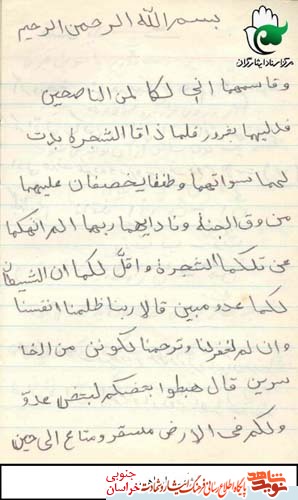 بسم الله الرحمن الرحیم
مرکز اسناد ایثارگران
وقاسمهما انی لکما لمن الناصحین
فدلیهما بغرور فلما ذاقا الشجرة بدت
لهما سواتهما وطفقا یخصفان علیهما
من ورق الجنة ونادیهما ربهما الم انهکما
عن تلکما الشجرة واقل لکما ان الشیطان
لکما عدو مبین قالا ربنا ظلمنا انفسنا
وان لم تغفرلنا وترحمنا لکونن من الخا
سرین قال هبطوا بعضکم لبعض عدو
ولکم فی الارض مستقر ومتاع الی حین
نوید شاهد
پایگاه اطلاع رسانی فرهنگ ایثار و شهادت
خراسان جنوبی